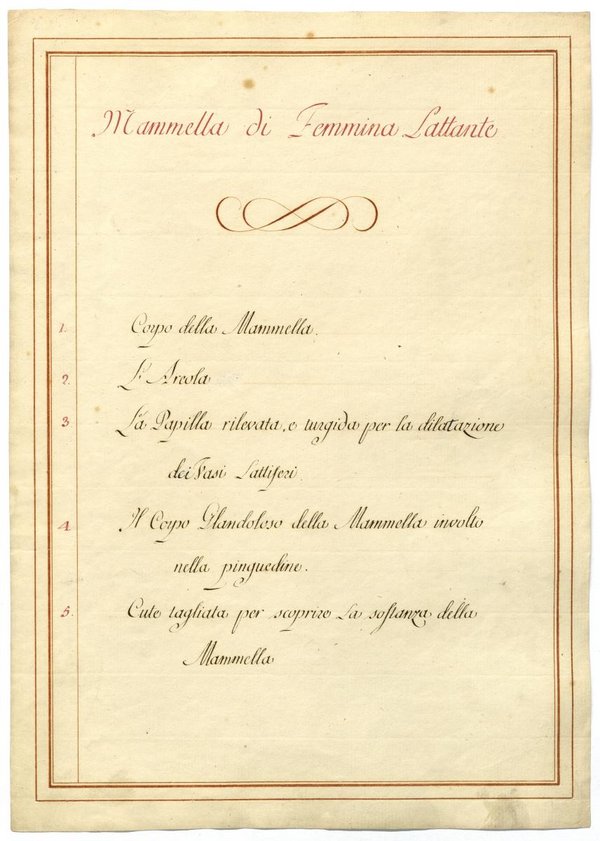 Mammella di Femmina Lattante
1. Corpo della Mammella.
2. L'Areola
3 La Papilla rilevata, e turgida per la dilatazione
dei Vasi Lattiferi.
4. Il Corpo Glandoloso della Mammella involto
nella pinguedine.
5. Cute tagliata per scoprire la sostanza della
Mammella